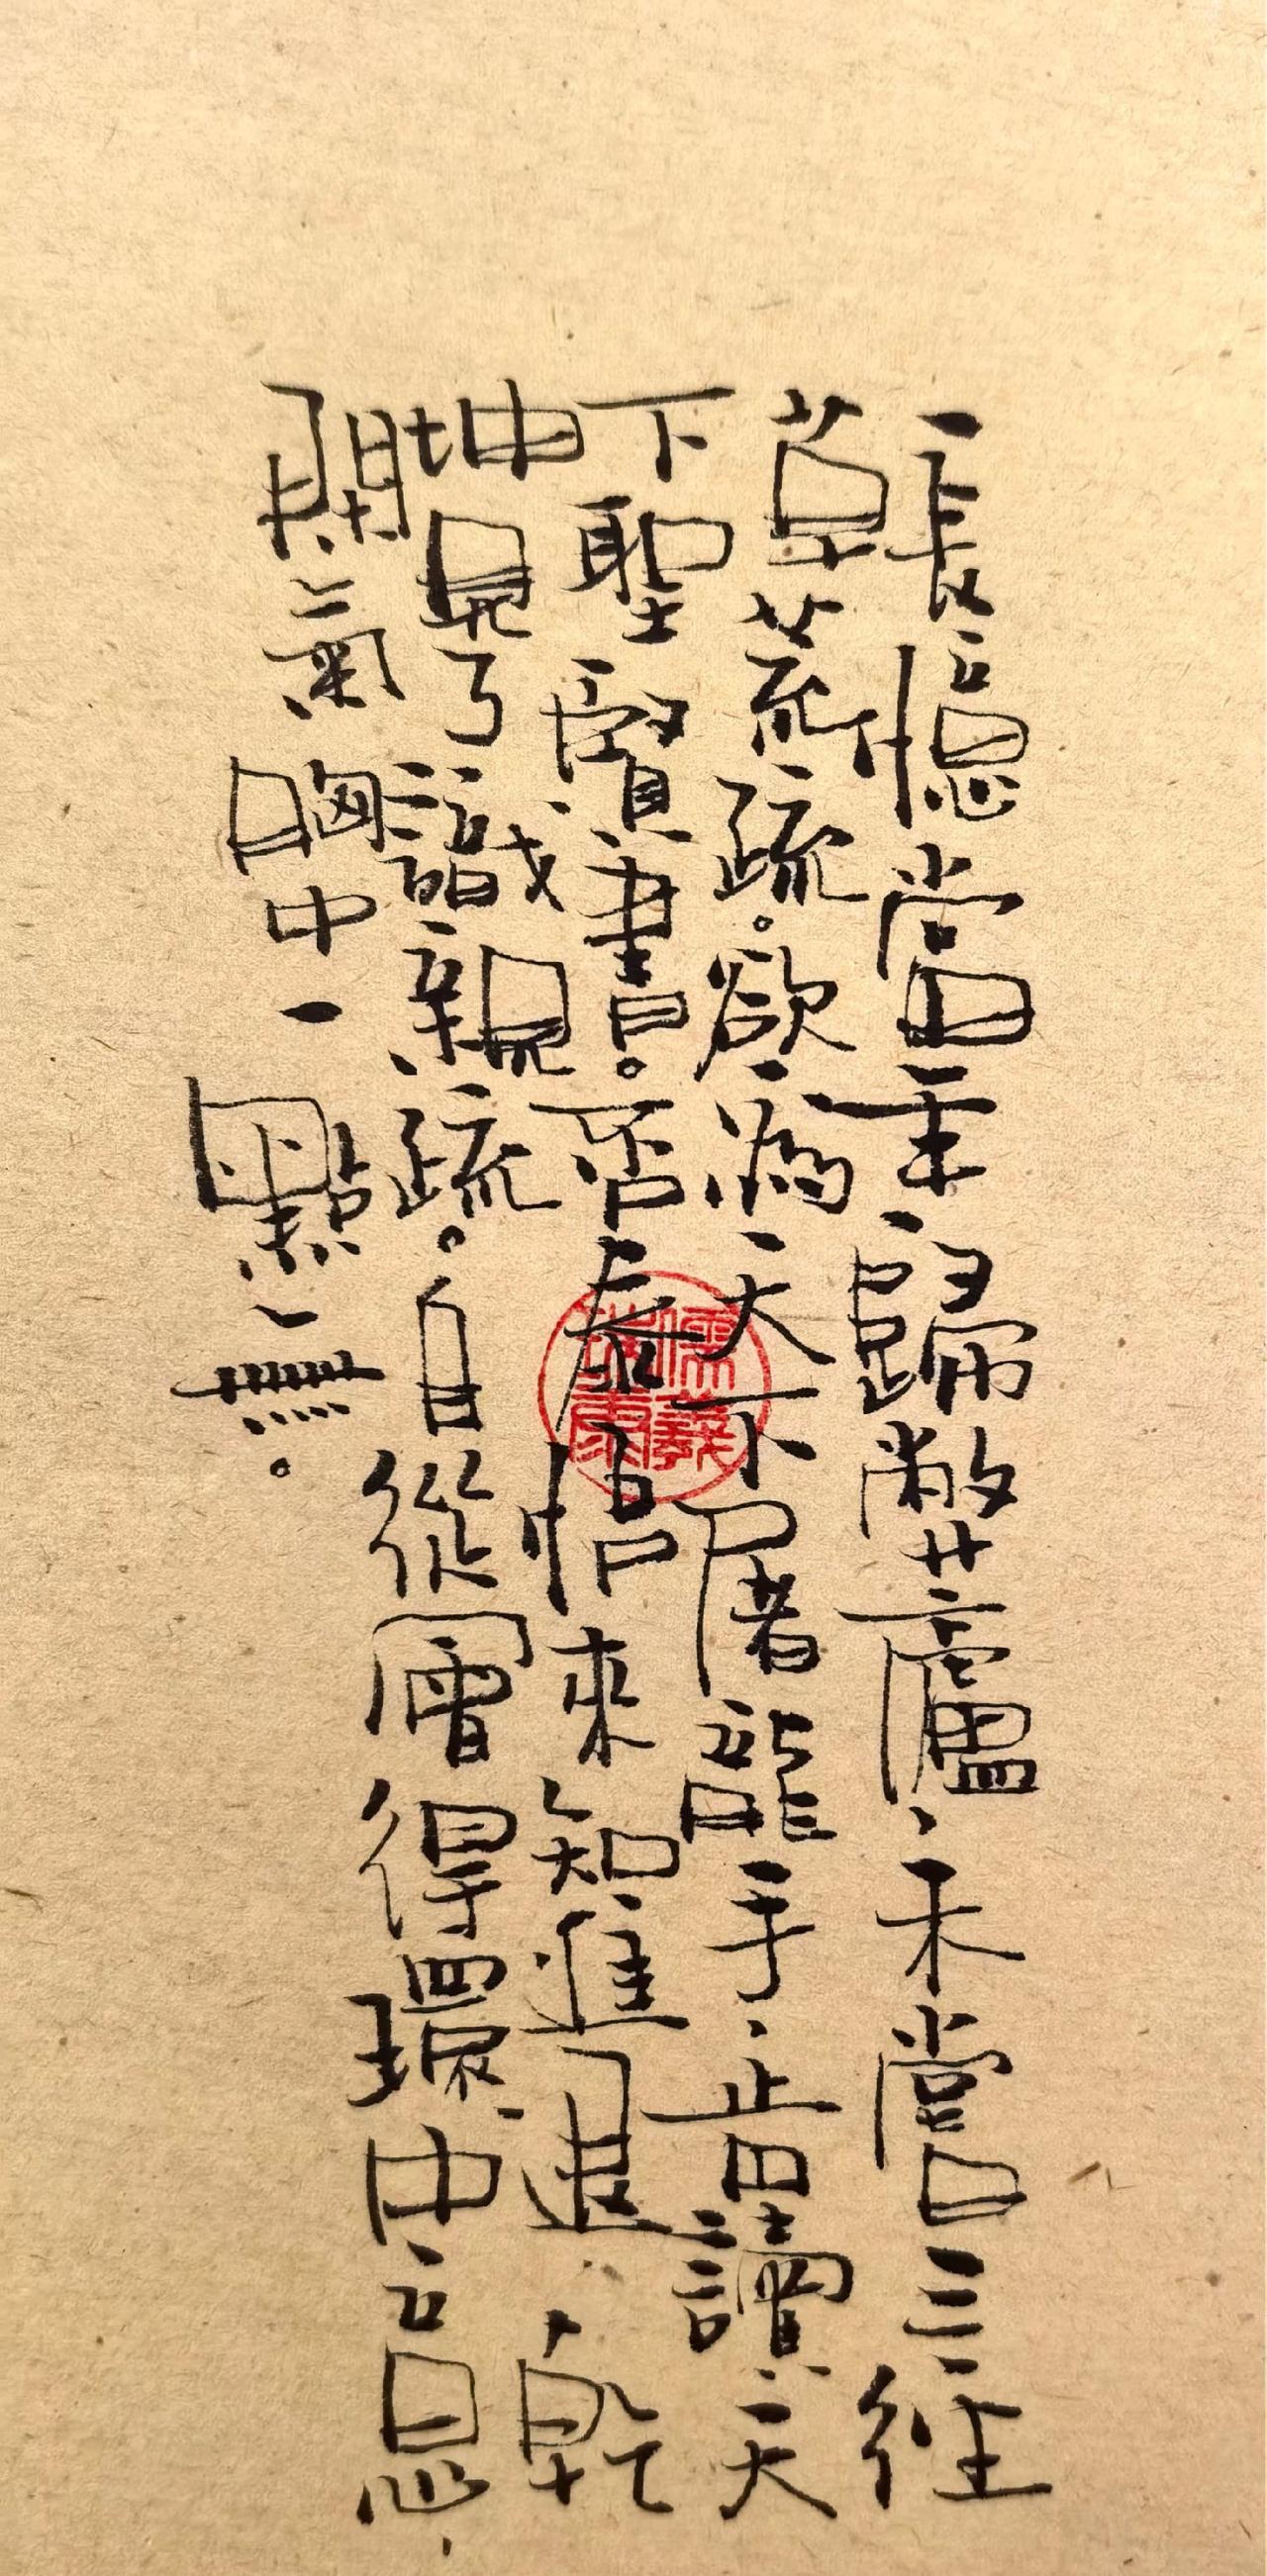 長憶當年歸弊廬、未嘗三徑
草荒疏。欲為天下屠龍手、肯讀天
下聖賢書。否泰悟來知進退、乾
坤見了識親疏。自從會得環中意、
閑氣胸中一點無。